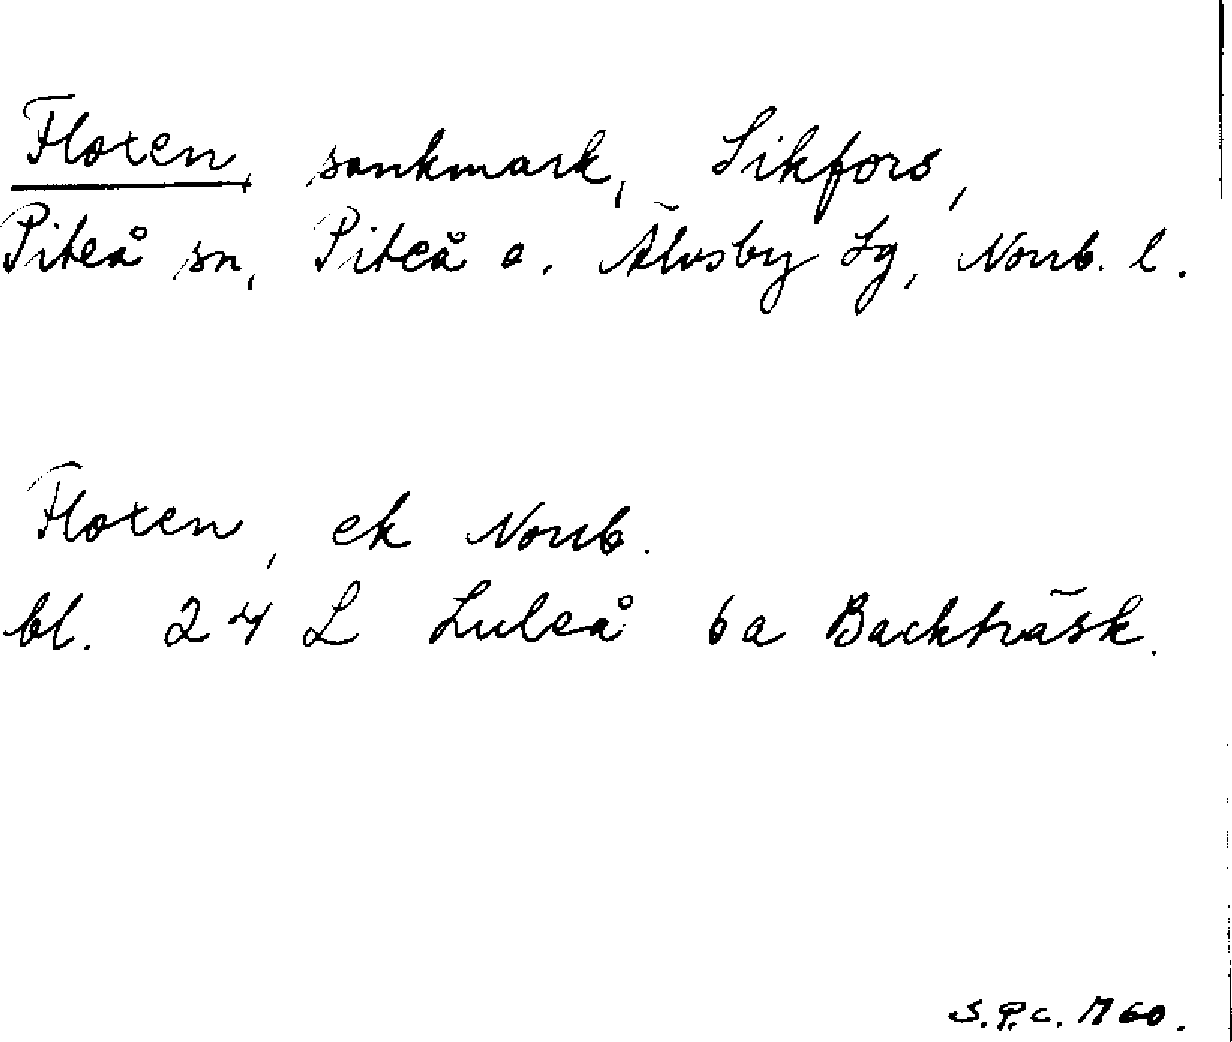 Floten, sankmark, Sikfors,
Piteå sn, Piteå o. Älvsby tg, Norrb. l.
Floten, ek Norrb.
bl. 24 L Luleå 6a Backträsk.
S.P.C. M60.